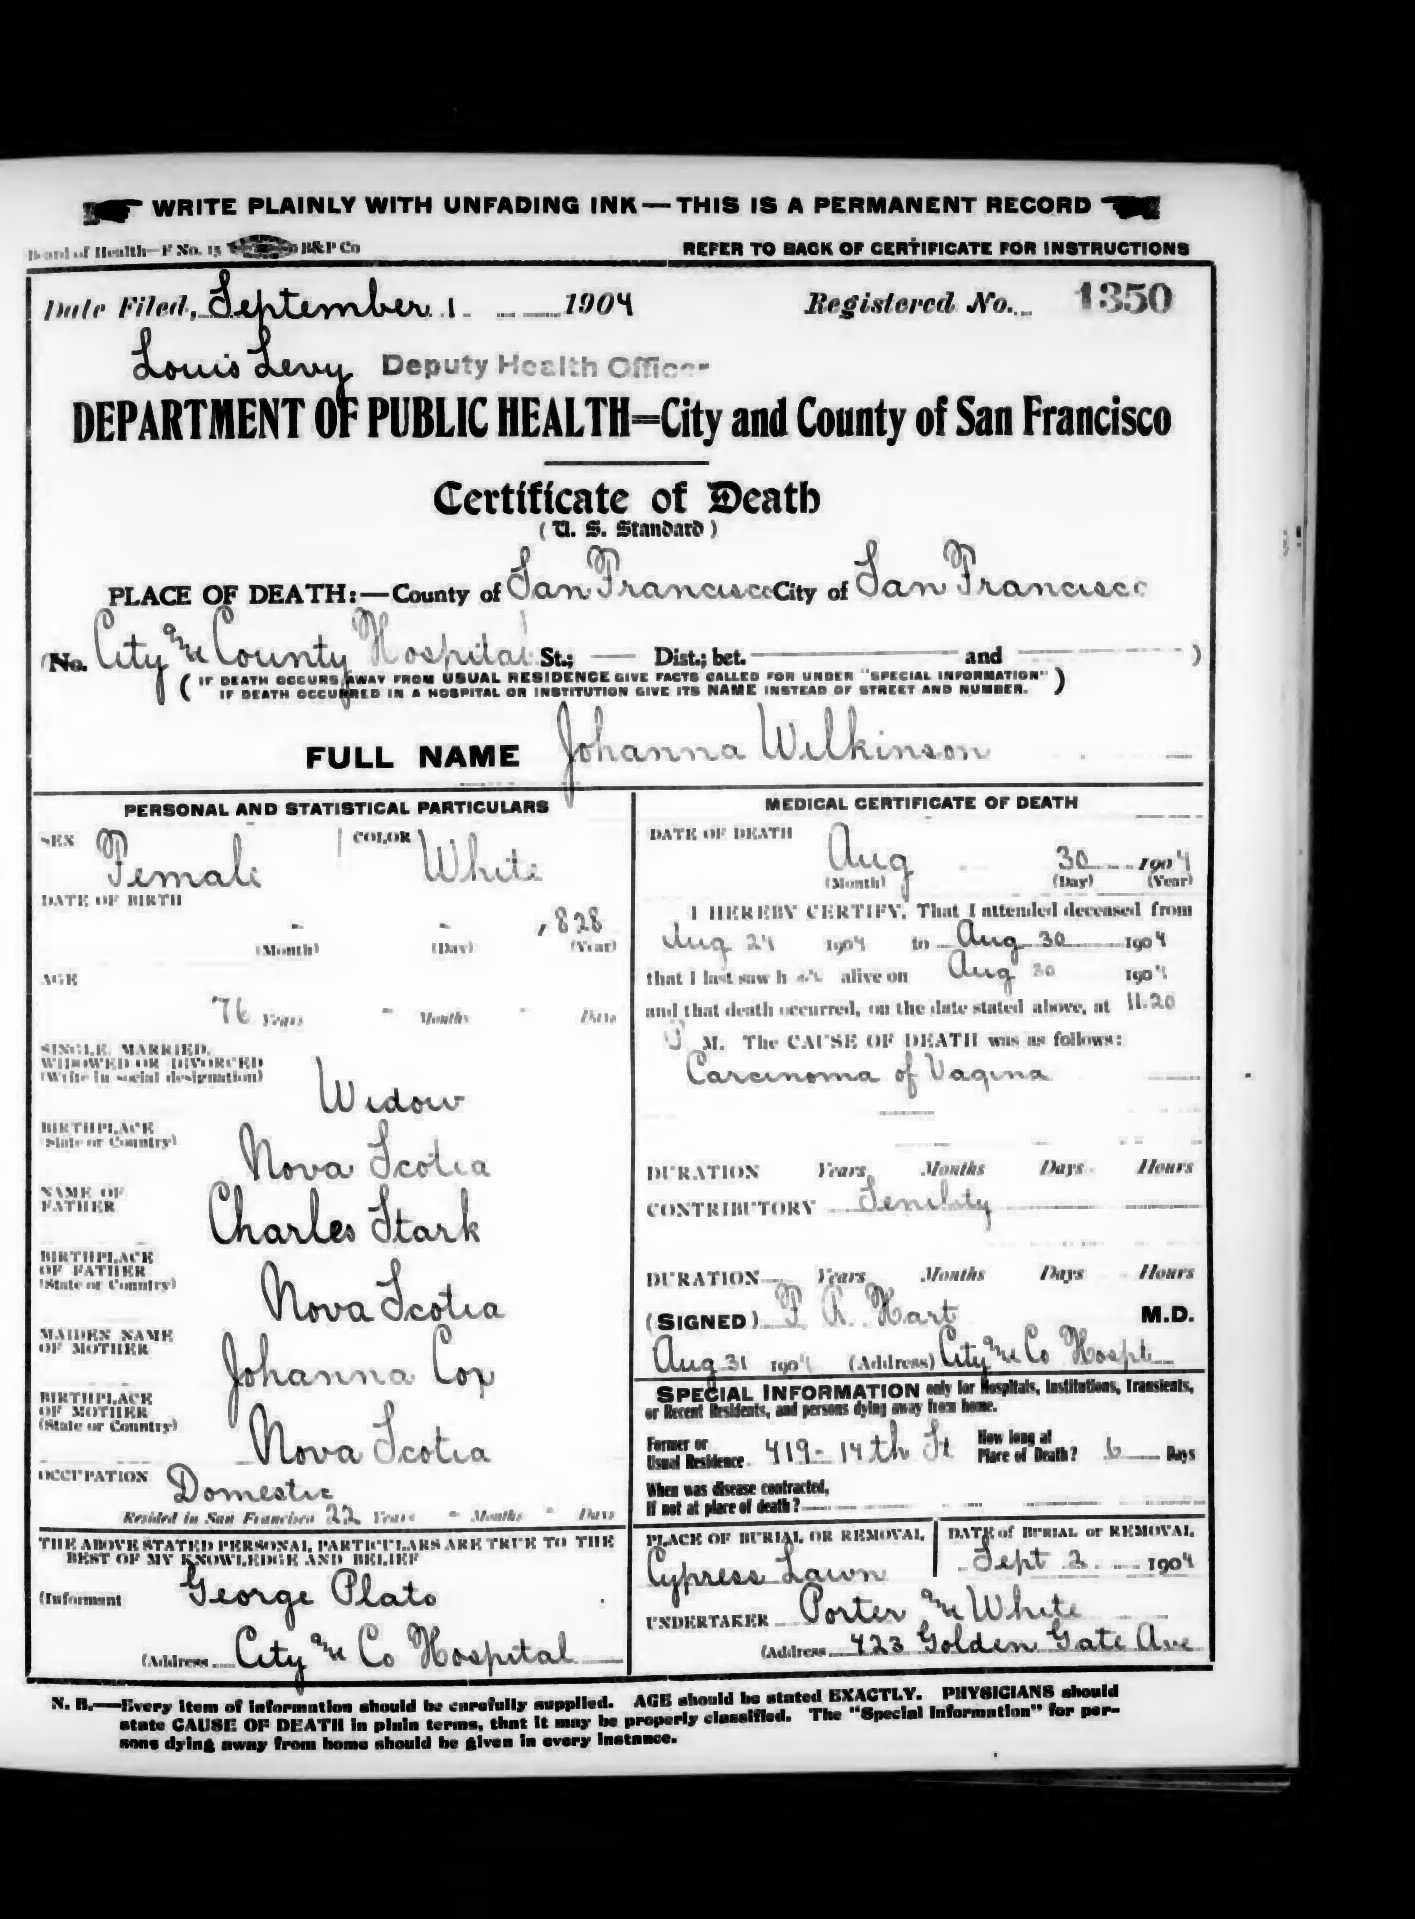 WRITE PLAINLY WITH UNFADING INK—THIS IS A PERMANENT RECORD
Board of Health—F No. 15 B&P Co
REFER TO BACK OF CERTIFICATE FOR INSTRUCTIONS
Date Filed, September 1 1904 Registered No. 1350
Louis Levy Deputy Health Officer
DEPARTMENT OF PUBLIC HEALTH=City and County of San Francisco
Certificate of Death
(U. S. Standard)
PLACE OF DEATH:—County of San Francisco City of San Francisco
(No. City and County Hospital St.; — Dist.; bet. — and — )
(IF DEATH OCCURS AWAY FROM USUAL RESIDENCE GIVE FACTS CALLED FOR UNDER "SPECIAL INFORMATION"
IF DEATH OCCURRED IN A HOSPITAL OR INSTITUTION GIVE ITS NAME INSTEAD OF STREET AND NUMBER.)
FULL NAME Johanna Wilkinson
PERSONAL AND STATISTICAL PARTICULARS
SEX Female COLOR White
DATE OF BIRTH
- - 1828
(Month) (Day) (Year)
AGE
76 Years - Months - Days
SINGLE, MARRIED,
WIDOWED OR DIVORCED
(Write in social designation)
Widow
BIRTHPLACE
(State or Country)
Nova Scotia
NAME OF
FATHER
Charles Stark
BIRTHPLACE
OF FATHER
(State or Country)
Nova Scotia
MAIDEN NAME
OF MOTHER
Johanna Cox
BIRTHPLACE
OF MOTHER
(State or Country)
Nova Scotia
OCCUPATION Domestic
Resided in San Francisco 22 Years - Months - Days
THE ABOVE STATED PERSONAL PARTICULARS ARE TRUE TO THE
BEST OF MY KNOWLEDGE AND BELIEF
(Informant George Plato
(Address City and Co Hospital
MEDICAL CERTIFICATE OF DEATH
DATE OF DEATH
Aug 30 1904
(Month) (Day) (Year)
I HEREBY CERTIFY, That I attended deceased from
Aug 24 1904 to Aug 30 1904
that I last saw h er alive on Aug 30 1904
and that death occurred, on the date stated above, at 11.20
P M. The CAUSE OF DEATH was as follows:
Carcinoma of Vagina
DURATION Years Months Days Hours
CONTRIBUTORY Senility
DURATION Years Months Days Hours
(SIGNED) F. R. Hart M.D.
Aug 31 1904 (Address) City and Co Hospt
SPECIAL INFORMATION only for Hospitals, Institutions, Transients,
or Recent Residents, and persons dying away from home.
Former or
Usual Residence 419-14th St
How long at
Place of Death? 6 Days
When was disease contracted,
If not at place of death?
PLACE OF BURIAL OR REMOVAL
Cypress Lawn
DATE of BURIAL or REMOVAL
Sept 2 1904
UNDERTAKER Porter and White
(Address 423 Golden Gate Ave
N. B.—Every item of information should be carefully supplied. AGE should be stated EXACTLY. PHYSICIANS should
state CAUSE OF DEATH in plain terms, that it may be properly classified. The "Special Information" for per-
sons dying away from home should be given in every instance.